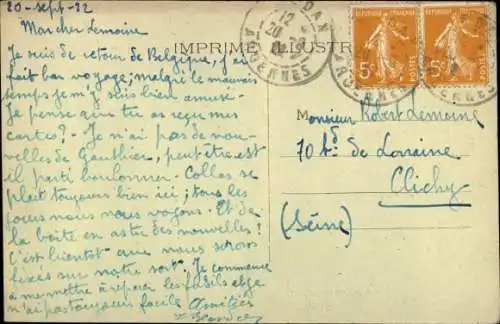 20-sept-22
Mon cher Lemoine
Je suis de retour de Belgique, j'ai
fait bon voyage; malgré le mauvais
temps je m'y suis bien amusé.
Je pense que tu as reçu mes
cartes? - Je n'ai pas de nou-
velles de Gauthier, peut-être est
il parti boulonner. Collas se
plaît toujours bien ici; tous les
jours nous nous voyons. Et de
la boîte en as tu des nouvelles?
C'est bientôt que nous serons
fixés sur notre sort. Je commence
à me mettre à réparer les fusils et ça
n'est pas toujours facile Amitiés
IMPRIMÉ ILLUSTRÉ
SEDAN
ARDENNES
12
20
22
REPUBLIQUE FRANÇAISE
5c
POSTES
REPUBLIQUE FRANÇAISE
5c
POSTES
ARDENNES
ARDENNES
M
Monsieur Robert Lemoine
70 bd de Lorraine
Clichy
(Seine)